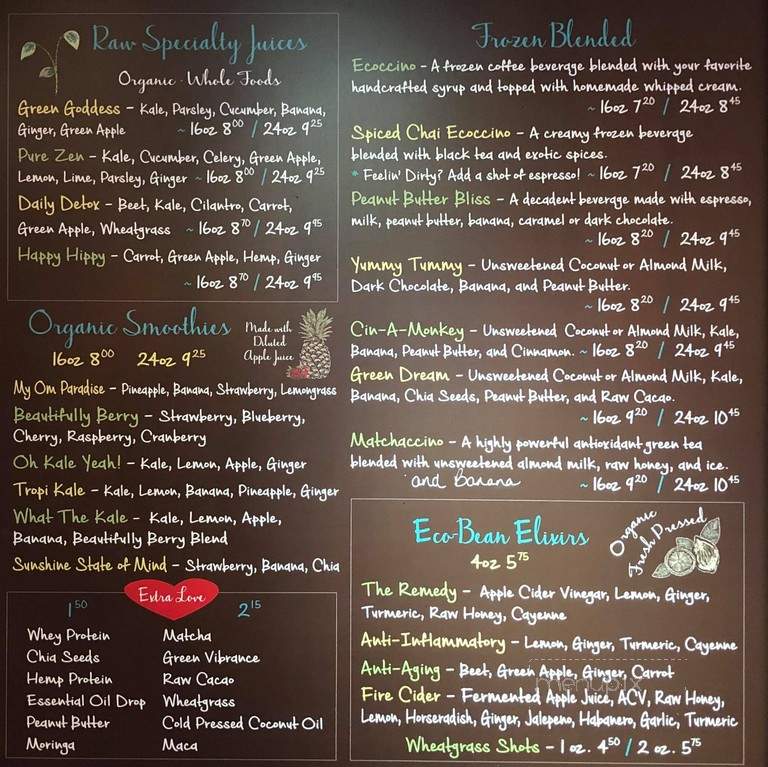 Raw Specialty Juices
Organic · Whole Foods
Green Goddess - Kale, Parsley, Cucumber, Banana,
Ginger, Green Apple ~ 16oz 8⁰⁰ / 24oz 9²⁵
Pure Zen - Kale, Cucumber, Celery, Green Apple,
Lemon, Lime, Parsley, Ginger ~ 16oz 8⁰⁰ / 24oz 9²⁵
Daily Detox - Beet, Kale, Cilantro, Carrot,
Green Apple, Wheatgrass ~ 16oz 8⁷⁰ / 24oz 9⁹⁵
Happy Hippy - Carrot, Green Apple, Hemp, Ginger
~ 16oz 8⁷⁰ / 24oz 9⁹⁵
Organic Smoothies
16oz 8⁰⁰ 24oz 9²⁵
Made with
Diluted
Apple Juice
My Om Paradise - Pineapple, Banana, Strawberry, Lemongrass
Beautifully Berry - Strawberry, Blueberry,
Cherry, Raspberry, Cranberry
Oh Kale Yeah! - Kale, Lemon, Apple, Ginger
Tropi Kale - Kale, Lemon, Banana, Pineapple, Ginger
What The Kale - Kale, Lemon, Apple,
Banana, Beautifully Berry Blend
Sunshine State of Mind - Strawberry, Banana, Chia
Extra Love
1⁵⁰ 2¹⁵
Whey Protein Matcha
Chia Seeds Green Vibrance
Hemp Protein Raw Cacao
Essential Oil Drop Wheatgrass
Peanut Butter Cold Pressed Coconut Oil
Moringa Maca
Frozen Blended
Ecoccino - A frozen coffee beverage blended with your favorite
handcrafted syrup and topped with homemade whipped cream.
~ 16oz 7²⁰ / 24oz 8⁴⁵
Spiced Chai Ecoccino - A creamy frozen beverage
blended with black tea and exotic spices.
* Feelin' Dirty? Add a shot of espresso! ~ 16oz 7²⁰ / 24oz 8⁴⁵
Peanut Butter Bliss - A decadent beverage made with espresso,
milk, peanut butter, banana, caramel or dark chocolate.
~ 16oz 8²⁰ / 24oz 9⁴⁵
Yummy Tummy - Unsweetened Coconut or Almond Milk,
Dark Chocolate, Banana, and Peanut Butter.
~ 16oz 8²⁰ / 24oz 9⁴⁵
Cin-A-Monkey - Unsweetened Coconut or Almond Milk, Kale,
Banana, Peanut Butter, and Cinnamon. ~ 16oz 8²⁰ / 24oz 9⁴⁵
Green Dream - Unsweetened Coconut or Almond Milk, Kale,
Banana, Chia Seeds, Peanut Butter, and Raw Cacao.
~ 16oz 9²⁰ / 24oz 10⁴⁵
Matchaccino - A highly powerful antioxidant green tea
blended with unsweetened almond milk, raw honey, and ice.
and Banana ~ 16oz 9²⁰ / 24oz 10⁴⁵
Eco-Bean Elixirs
4oz 5⁷⁵
Organic
Fresh Pressed
The Remedy - Apple Cider Vinegar, Lemon, Ginger,
Turmeric, Raw Honey, Cayenne
Anti-Inflammatory - Lemon, Ginger, Turmeric, Cayenne
Anti-Aging - Beet, Green Apple, Ginger, Carrot
Fire Cider - Fermented Apple Juice, ACV, Raw Honey,
Lemon, Horseradish, Ginger, Jalepeno, Habanero, Garlic, Turmeric
Wheatgrass Shots - 1 oz. 4⁵⁰ / 2 oz. 5⁷⁵
menupix